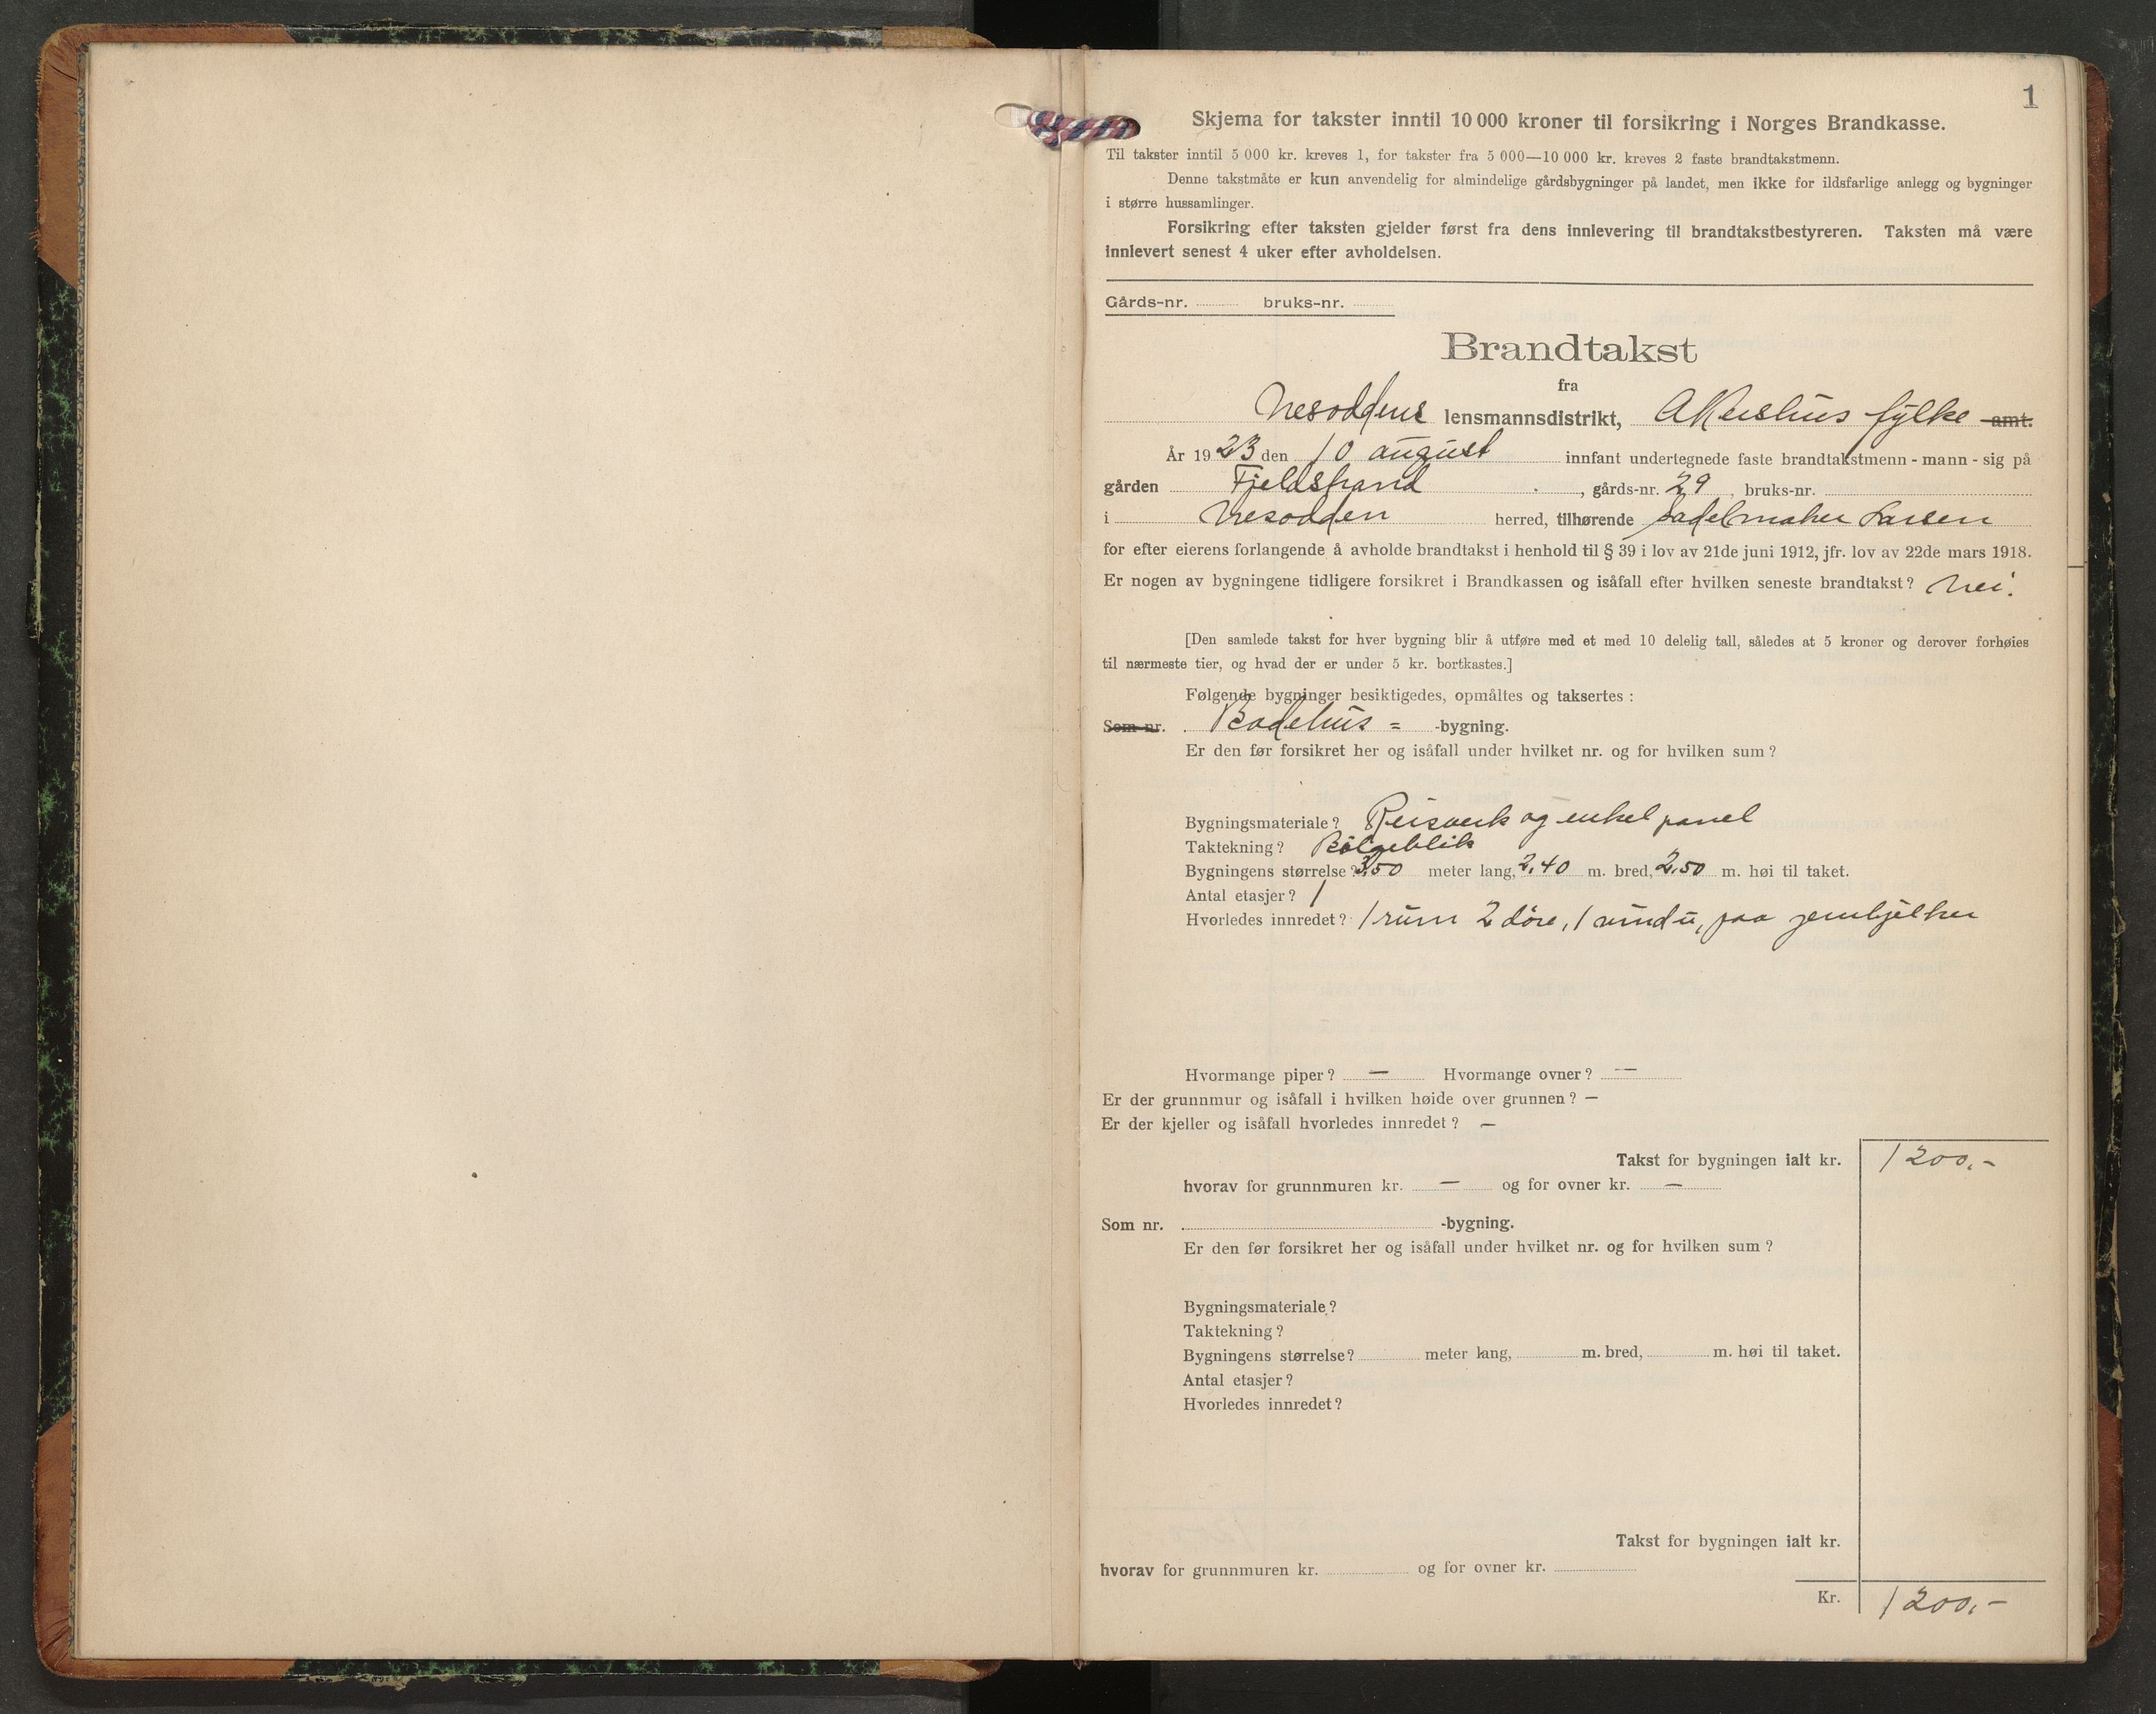 1
Skjema for takster inntil 10 000 kroner til forsikring i Norges Brandkasse.
Til takster inntil 5 000 kr. kreves 1, for takster fra 5 000—10 000 kr. kreves 2 faste brandtakstmenn.
Denne takstmåte er kun anvendelig for almindelige gårdsbygninger på landet, men ikke for ildsfarlige anlegg og bygninger
i større hussamlinger.
Forsikring efter taksten gjelder først fra dens innlevering til brandtakstbestyreren. Taksten må være
innlevert senest 4 uker efter avholdelsen.
Gårds-nr. bruks-nr.
Brandtakst
fra
Nesoddens lensmannsdistrikt, Akershus fylke amt.
År 1923 den 10 august innfant undertegnede faste brandtakstmenn - mann - sig på
gården Fjeldstrand, gårds-nr. 29, bruks-nr.
i Nesodden herred, tilhørende Sadelmaker Larsen
for efter eierens forlangende å avholde brandtakst i henhold til § 39 i lov av 21de juni 1912, jfr. lov av 22de mars 1918.
Er nogen av bygningene tidligere forsikret i Brandkassen og isåfall efter hvilken seneste brandtakst? Nei.
[Den samlede takst for hver bygning blir å utføre med et med 10 delelig tall, således at 5 kroner og derover forhøies
til nærmeste tier, og hvad der er under 5 kr. bortkastes.]
Følgende bygninger besiktigedes, opmåltes og taksertes :
Som nr. Badehus = -bygning.
Er den før forsikret her og isåfall under hvilket nr. og for hvilken sum?
Bygningsmateriale? Reisverk og enkel panel
Taktekning? Bølgeblik
Bygningens størrelse? 3,50 meter lang, 2,40 m. bred, 2,50 m. høi til taket.
Antal etasjer? 1
Hvorledes innredet? 1 rum 2 døre, 1 vindu, paa jernbjelker
Hvormange piper? — Hvormange ovner? —
Er der grunnmur og isåfall i hvilken høide over grunnen? —
Er der kjeller og isåfall hvorledes innredet? —
Takst for bygningen ialt kr. 1200,-
hvorav for grunnmuren kr. — og for ovner kr. —
Som nr. -bygning.
Er den før forsikret her og isåfall under hvilket nr. og for hvilken sum?
Bygningsmateriale?
Taktekning?
Bygningens størrelse? meter lang, m. bred, m. høi til taket.
Antal etasjer?
Hvorledes innredet?
Takst for bygningen ialt kr.
hvorav for grunnmuren kr. og for ovner kr.
Kr. 1200,-